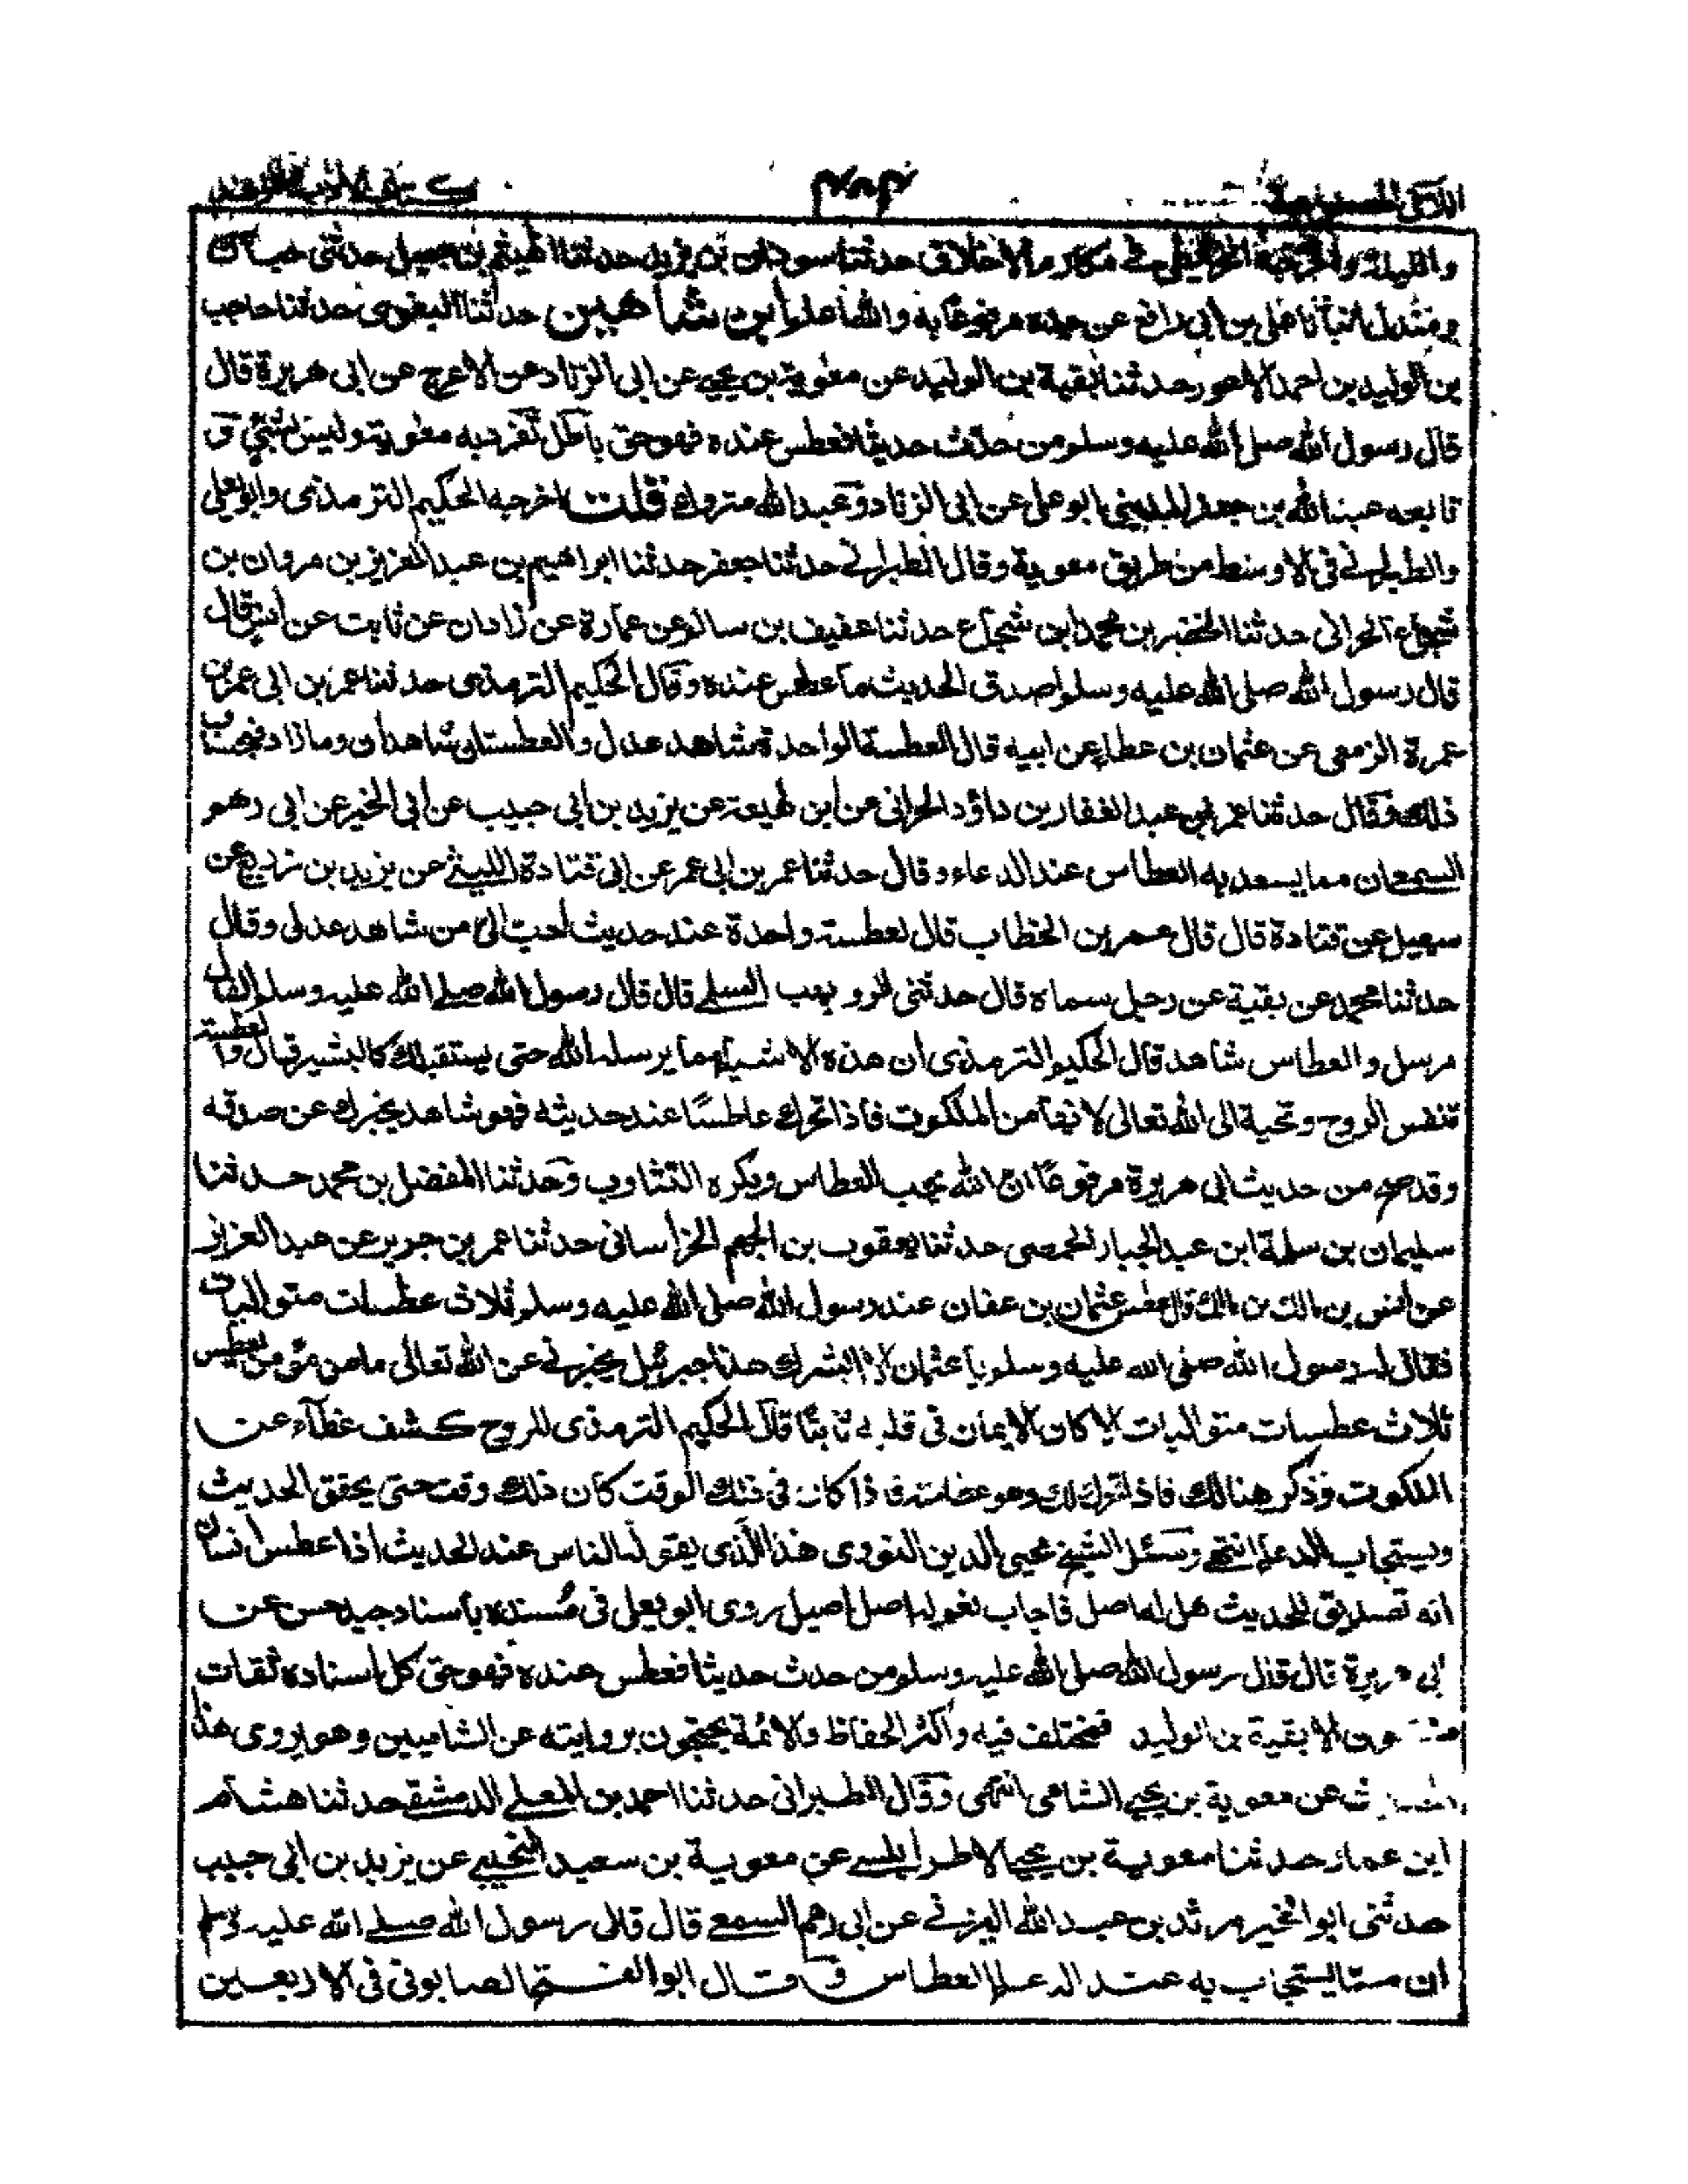 واللیلة واخرجه الخرائطی فی مکارم الاخلاق حدثنا سودان بن یزید حدثنا الهیثم بن جمیل حدثنی حبان
ومندل انبأنا علی بن ابی رافع عن جده مرفوعا به والله اعلم ابن شاهین حدثنا البغوی حدثنا حاجب
بن الولید بن احمد الاعور حدثنا بقیة بن الولید عن معویة بن یحیی عن ابی الزناد عن الاعرج عن ابی هریرة قال
قال رسول الله صلی الله علیه وسلم من حدّث حدیثا فعطس عنده فهو حق باطل تفرد به معویة ولیس بشیٔ و
تابعه عبد الله بن جعفر المدینی ابو علی عن ابی الزناد وعبد الله متروك قلت اخرجه الحکیم الترمذی وابو یعلی
والطبرانی فی الاوسط من طریق معویة وقال الطبرانی حدثنا جعفر حدثنا ابراهیم بن عبد العزیز بن مروان بن
شجاع الحرانی حدثنا الخضر بن محمد ابن شجاع حدثنا عفیف بن سالم عن عمارة عن زادان عن ثابت عن انس قال
قال رسول الله صلی الله علیه وسلم اصدق الحدیث ما عطس عنده وقال الحکیم الترمذی حدثنا عمر بن ابی عمر بن
عمرة الزمعی عن عثمان بن عطاء عن ابیه قال العطسة الواحدة شاهد عدل والعطستان شاهدان وما زاد فبحساب
ذلك وقال حدثنا عمر عن عبد الغفار بن داؤد الحرانی عن ابن لهیعة عن یزید بن ابی حبیب عن ابی الخیر عن ابی رهم
السمعی ان مما یسعد به العطاس عند الدعاء وقال حدثنا عمر بن ابی عمر عن ابی قتادة اللیثی عن یزید بن زریع عن
سعید عن قتادة قال قال عمر بن الخطاب قال لعطسة واحدة عند حدیث احب الیّ من شاهد عدل وقال
حدثنا محمد عن بقیة عن رجل سماه قال حدثنی السلمی قال قال رسول الله صلی الله علیه وسلم الفال
مرسل والعطاس شاهد قال الحکیم الترمذی ان هذه الاشیاء مما یرسله الله حتی یستقبلك کالبشیر قال والعطسة
تنفس الروح وتحیة الی الله تعالی لانها من الملکوت فاذا تحرك عاطسًا عند حدیثه فهو شاهد یخبرك عن صدقه
وقد صح من حدیث ابی هریرة مرفوعًا ان الله یحب العطاس ویکره التثاوب وحدثنا المفضل بن محمد حدثنا
سلیمان بن سلمة ابن عبد الجبار الحمصی حدثنا یعقوب بن الجهم الخراسانی حدثنا عمر بن جریر عن عبد العزیز
عن انس بن مالك قال عطس عثمان بن عفان عند رسول الله صلی الله علیه وسلم ثلاث عطسات متوالیات
فقال له رسول الله صلی الله علیه وسلم یا عثمان الا ابشرك هذا جبرئیل یخبرنی عن الله تعالی ما من مؤمن یعطس
ثلاث عطسات متوالیات الا کان الایمان فی قلبه ثابتًا قال الحکیم الترمذی للروح کشف غطاء عن
الملکوت وذکر هنالك فاذا تحرك لذلك وهو عطاسه فاذا کان فی ذلك الوقت کان ذلك وقت حتی یحقق الحدیث
ویستجاب الدعاء انتهی وسئل الشیخ محیی الدین النووی هذا الذی یقوله الناس عند الحدیث اذا عطس انسان
انه تصدیق للحدیث هل له اصل فاجاب نعم له اصل اصیل روی ابو یعلی فی مسنده باسناد جید حسن عن
ابی هریرة قال قال رسول الله صلی الله علیه وسلم من حدث حدیثا فعطس عنده فهو حق کل اسناده ثقات
الا بقیة بن الولید فمختلف فیه واکثر الحفاظ والائمة یحتجون بروایته عن الشامیین وهو یروی هذا
عن معویة بن یحیی الشامی انتهی وقال الطبرانی حدثنا احمد بن المعلی الدمشقی حدثنا هشام
ابن عمار حدثنا معویة بن یحیی الاطرابلسی عن معویة بن سعید التجیبی عن یزید بن ابی حبیب
حدثنی ابو الخیر مرثد بن عبد الله الیزنی عن ابی رهم السمعی قال قال رسول الله صلی الله علیه وسلم
ان مما یستجاب به عند الدعاء العطاس وقال ابو الفتح الصابونی فی الاربعین